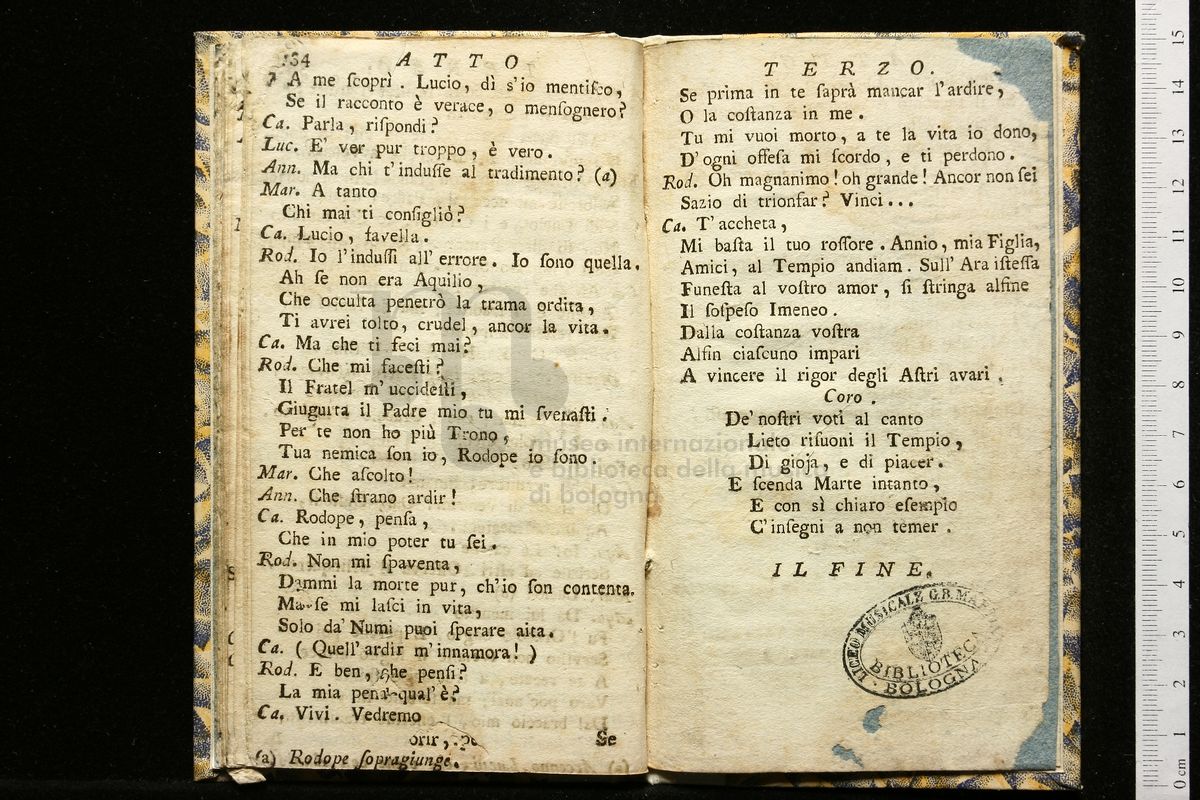 34 ATTO
A me ſcoprì. Lucio, dì s'io mentiſco,
Se il racconto è verace, o menſognero?
Ca. Parla, riſpondi?
Luc. E' ver pur troppo, è vero.
Ann. Ma chi t'induſſe al tradimento? (a)
Mar. A tanto
Chi mai ti conſigliò?
Ca. Lucio, favella.
Rod. Io l'induſſi all' errore. Io ſono quella.
Ah ſe non era Aquilio,
Che occulta penetrò la trama ordita,
Ti avrei tolto, crudel, ancor la vita.
Ca. Ma che ti feci mai?
Rod. Che mi faceſti?
Il Fratel m' uccideſti,
Giugurta il Padre mio tu mi ſvenaſti.
Per te non ho più Trono,
Tua nemica ſon io, Rodope io ſono.
Mar. Che aſcolto!
Ann. Che ſtrano ardir!
Ca. Rodope, penſa,
Che in mio poter tu ſei.
Rod. Non mi ſpaventa,
Dammi la morte pur, ch'io ſon contenta.
Ma ſe mi laſci in vita,
Solo da' Numi puoi ſperare aita.
Ca. ( Quell' ardir m'innamora! )
Rod. E ben, che penſi?
La mia pena qual' è?
Ca. Vivi. Vedremo
Se
(a) Rodope ſopragiunge.
TERZO.
Se prima in te ſaprà mancar l'ardire,
O la coſtanza in me.
Tu mi vuoi morto, a te la vita io dono,
D' ogni offeſa mi ſcordo, e ti perdono.
Rod. Oh magnanimo! oh grande! Ancor non ſei
Sazio di trionfar? Vinci...
Ca. T' accheta,
Mi baſta il tuo roſſore. Annio, mia Figlia,
Amici, al Tempio andiam. Sull' Ara iſteſſa
Funeſta al voſtro amor, ſi ſtringa alfine
Il ſoſpeſo Imeneo.
Dalla coſtanza voſtra
Alfin ciaſcuno impari
A vincere il rigor degli Aſtri avari.
Coro.
De' noſtri voti al canto
Lieto riſuoni il Tempio,
Di gioja, e di piacer.
E ſcenda Marte intanto,
E con sì chiaro eſempio
C' inſegni a non temer.
IL FINE.
LICEO MUSICALE G.B.
BIBLIOTECA
BOLOGNA
museo internazionale
e biblioteca della musica
di bologna
0 cm 1 2 3 4 5 6 7 8 9 10 11 12 13 14 15